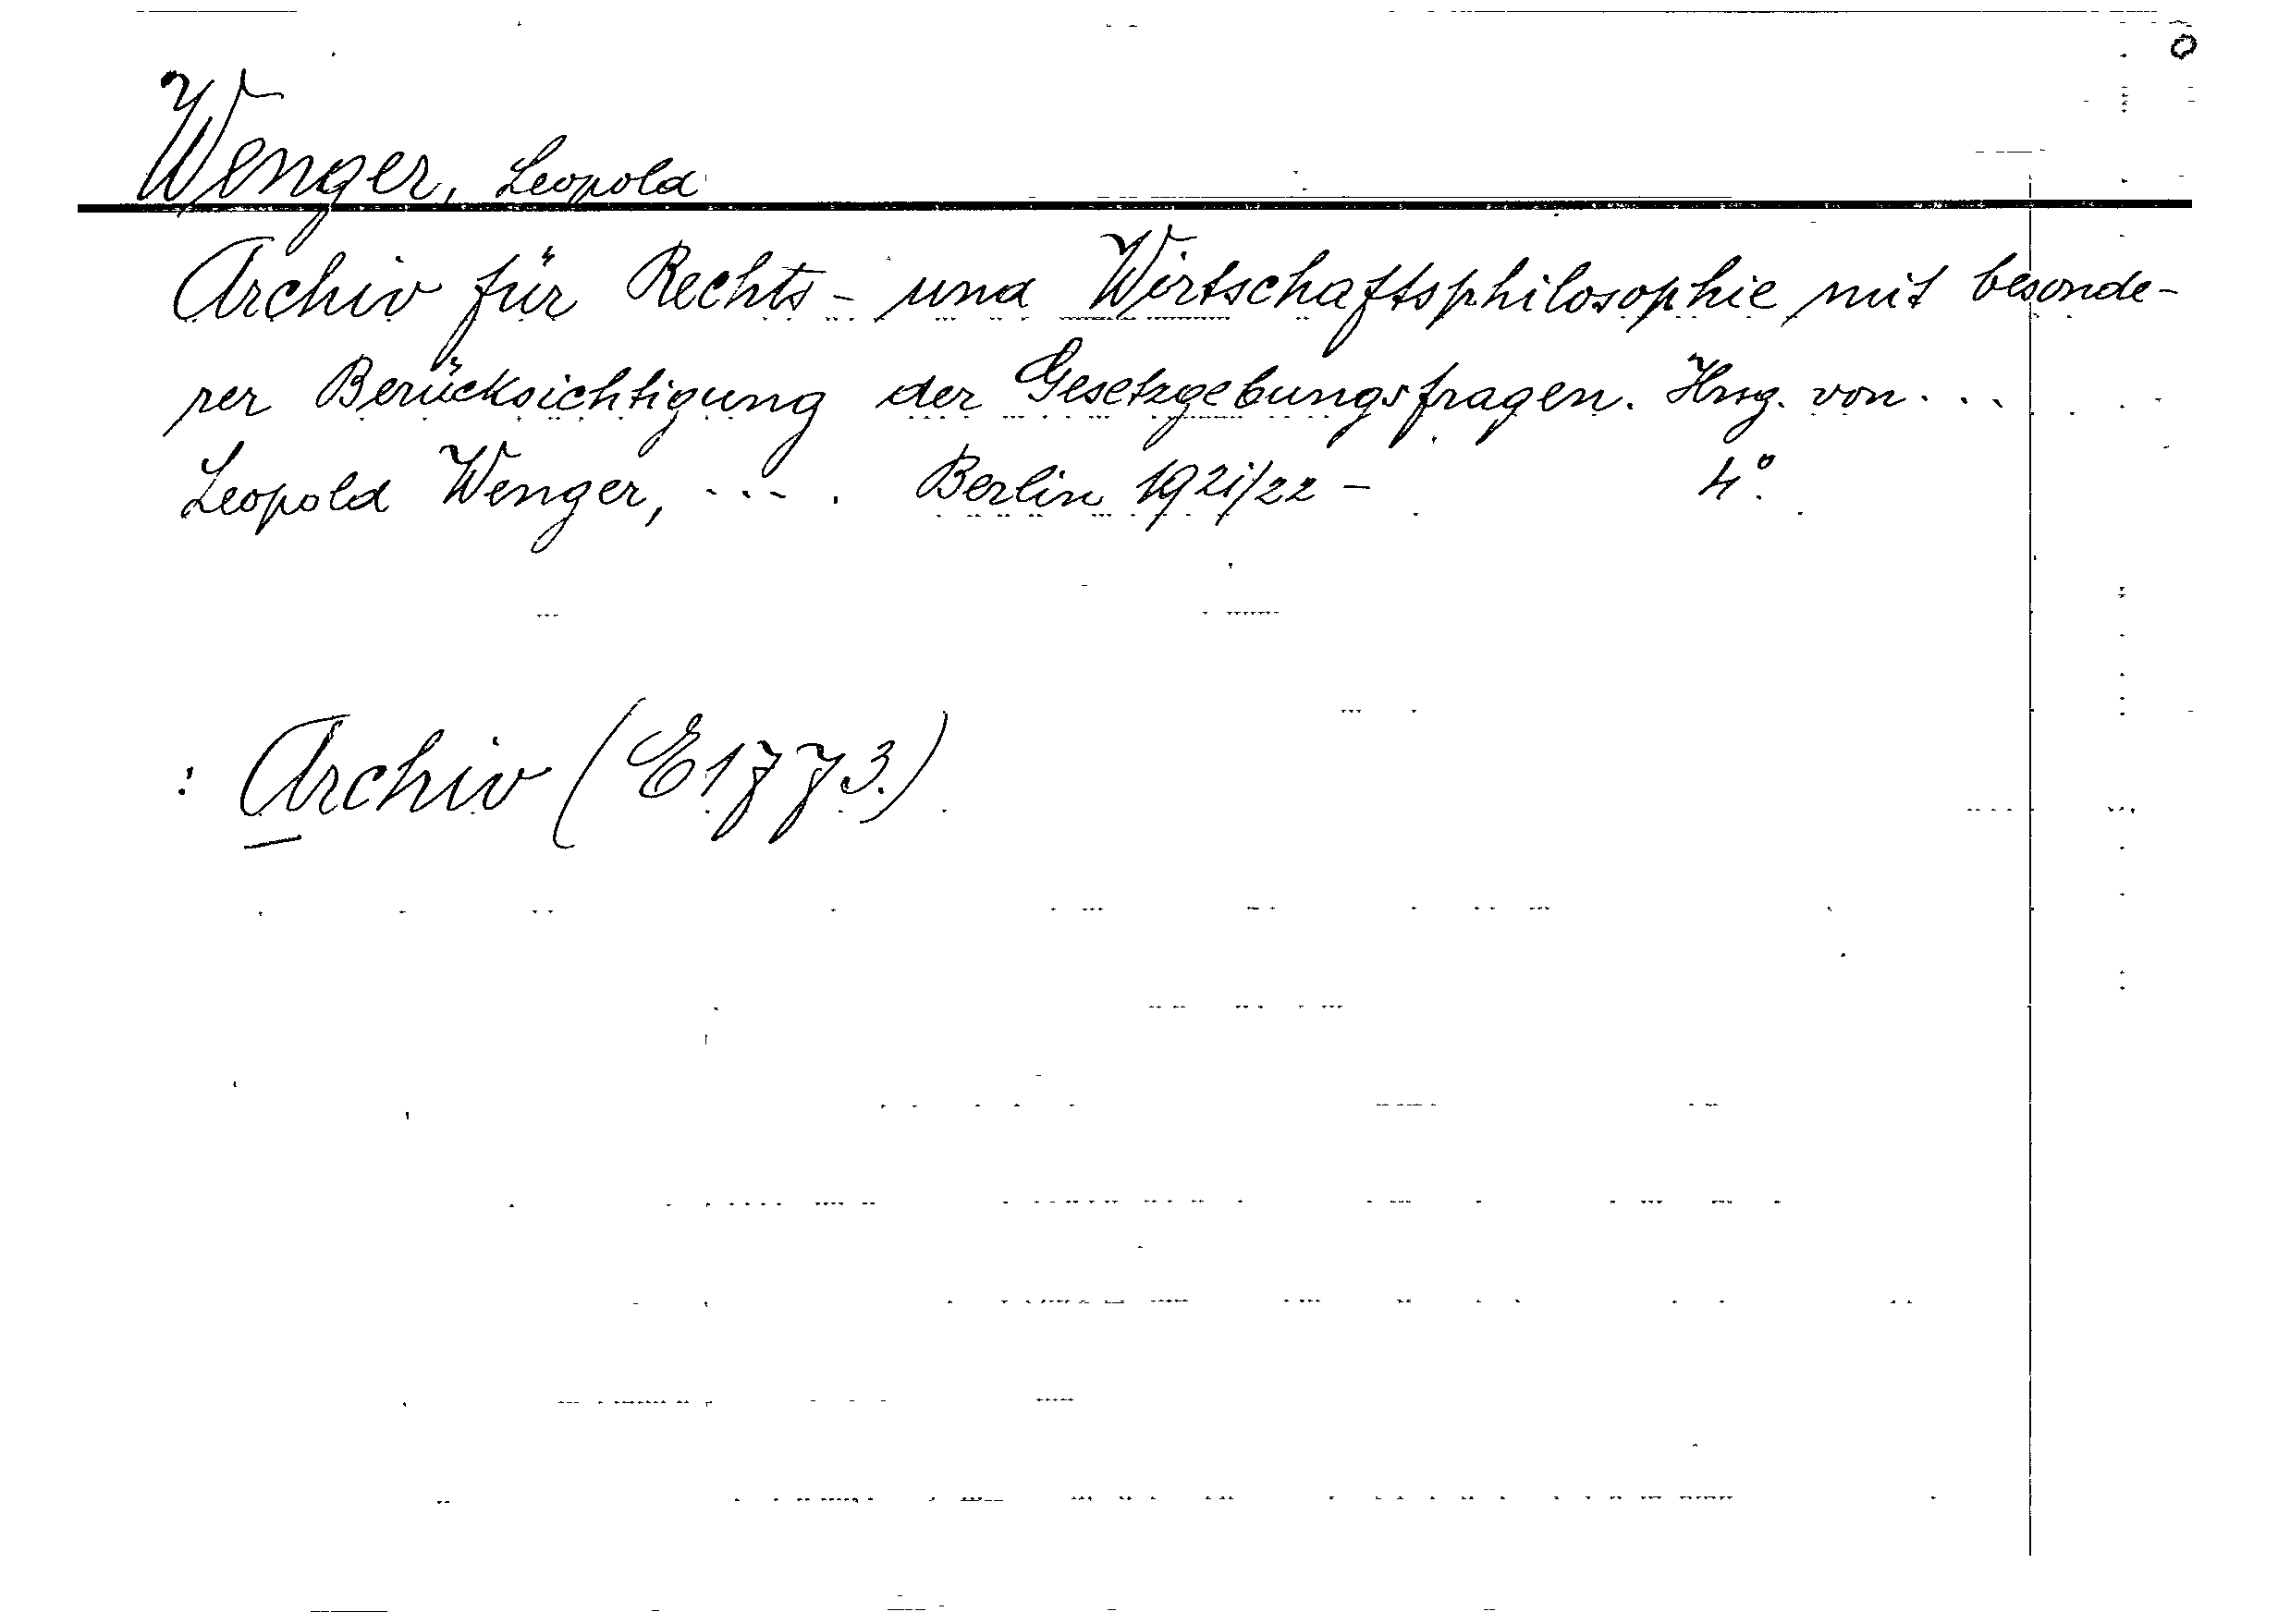 Wenger, Leopold
Archiv für Rechts- und Wirtschaftsphilosophie mit besonde-
rer Berücksichtigung der Gesetzgebungsfragen. Hrsg. von...
Leopold Wenger, .... Berlin 1921/22 - 4°.
: Archiv (E1773.)